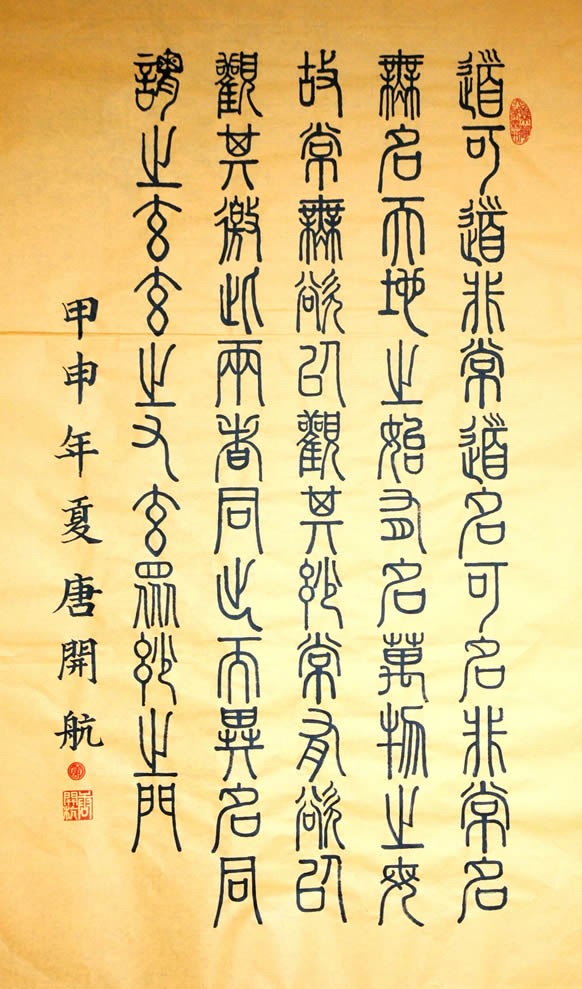 道可道非常道名可名非常名
無名天地之始有名萬物之母
故常無欲以觀其妙常有欲以
觀其徼此兩者同出而異名同
謂之玄玄之又玄眾妙之門
甲申年夏唐開航